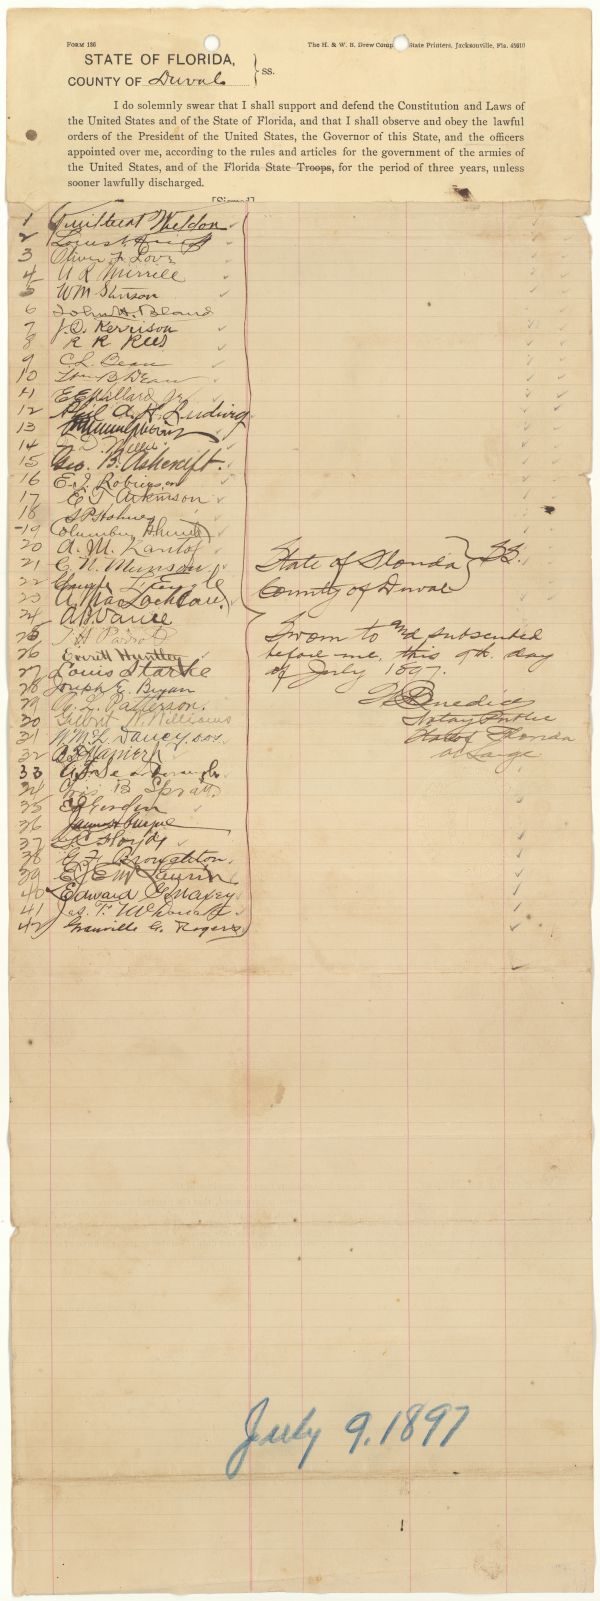 FORM 186
The H. & W. B. Drew Company, State Printers, Jacksonville, Fla. 45610
STATE OF FLORIDA,
COUNTY OF Duval } ss.
I do solemnly swear that I shall support and defend the Constitution and Laws of
the United States and of the State of Florida, and that I shall observe and obey the lawful
orders of the President of the United States, the Governor of this State, and the officers
appointed over me, according to the rules and articles for the government of the armies of
the United States, and of the Florida State Troops, for the period of three years, unless
sooner lawfully discharged.
[Signed]
1 Weldon
2 Louis
3 Oliver F. Love
4 U R Merrill
5 WM Stinson
6 John H. Bland
7 J. D. Kerrison
8 R R Rees
9 C. L. Bean
10 B Dean
11 E E Mallard Jr
12 Phil A. H. Ludwig
13
14 D. Willis
15 Geo. B. Ashcroft.
16 E. J. Robinson
17 E T Atkinson
18 S P Holmes
19 Columbus
20 A. M.
21 C. N. Munson
22 George L Engle
23 A. MacLachlan
24 A B Vance
25 H
26 Everett Huntley
27 Louis Starke
28 Joseph E. Bryan
29 A. L. Patterson.
30 W. Williams
31 Wm L. Dancy
32
33
34 Chas B Spratt.
35
36 James
37 Floyd
38 G. F. Broughton.
39 E. E. McLaurin
40 Edward C Maxey
41 Jas. F. McDonald
42 Granville G. Rogers
State of Florida } SS.
County of Duval
Sworn to and subscribed
before me, this 9th. day
of July 1897.
Benedict
Notary Public
State of Florida
at Large
July 9, 1897